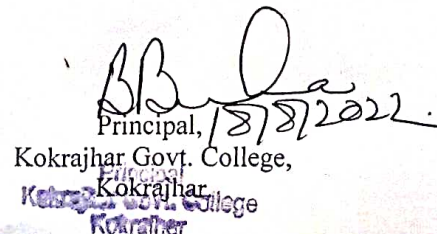 Principal, 18/8/2022.
Kokrajhar Govt. College,
Kokrajhar
Principal
Kokrajhar Govt. College
Kokrajhar